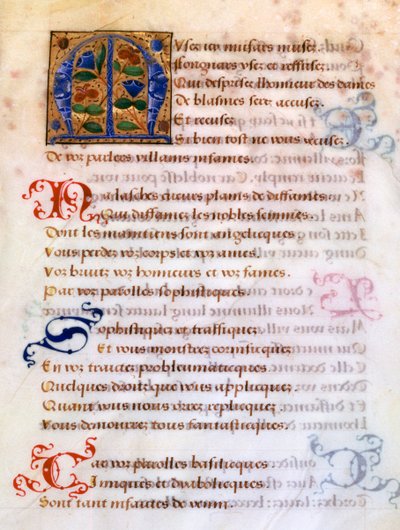 Musez icy musars musez
Songnars vsez et reffusez
Qui desprisez lhonneur des dames
De blasmes serez accusez
Et recusez
Si bien tost ne vous excusez
De voz parlers villains infames
Ha lasches cueurs plains de diffames
Qui diffamez les nobles femmes
Dont les maintiens sont angelicques
Vous perdez voz corps et voz ames
Voz bruitz voz honneurs et voz fames
Par voz parolles sophisticques
Sophistiquez et traffiquez
Et vous monstrez cornificquez
En voz traictez probleumaticques
Quelques droitz que vous applicquez
Quant vous nous orrez replicquez
Vous demourrez tous fantasticques
Car voz parolles basilicques
Iniques et dyabolicques
Sont tant infaictes de venin